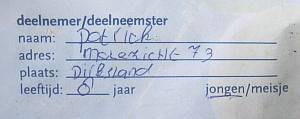 deelnemer/deelneemster
naam: Patrick
adres: Molezicht 73
plaats: Dirksland
leeftijd: 8 jaar jongen/meisje